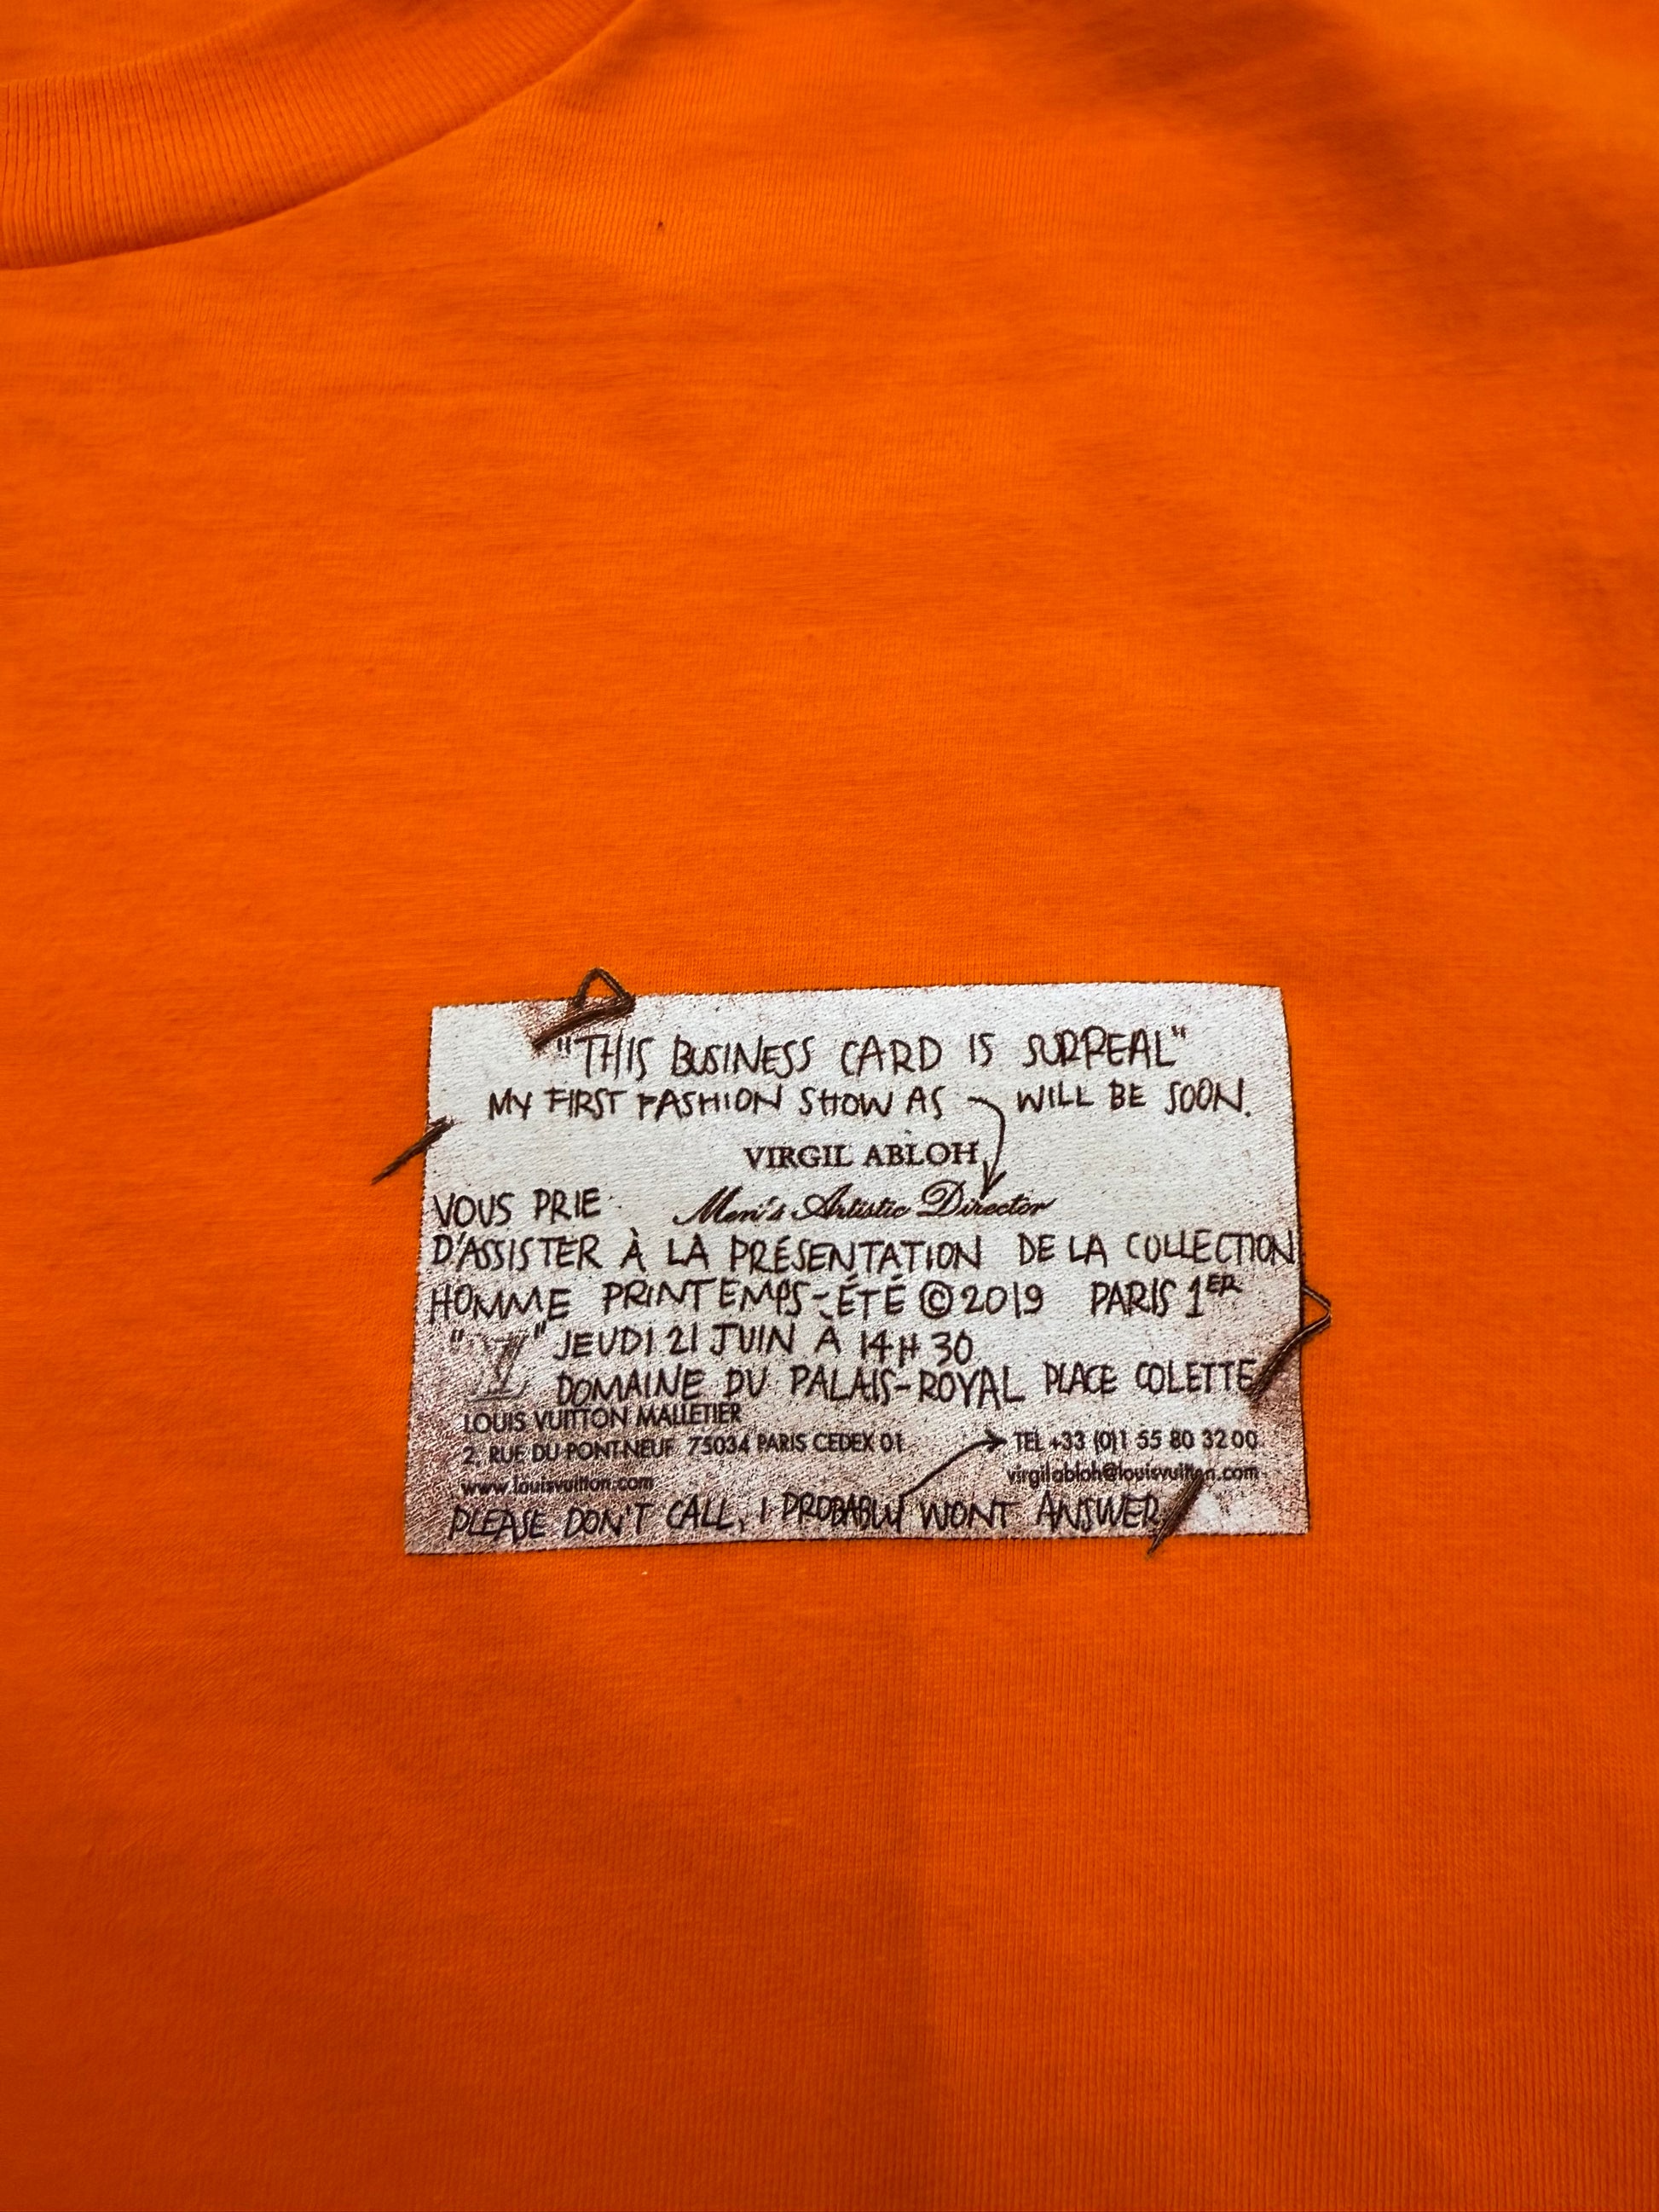 "THIS BUSINESS CARD IS SURREAL"
MY FIRST FASHION SHOW AS WILL BE SOON.
VIRGIL ABLOH
VOUS PRIE Men's Artistic Director
D'ASSISTER À LA PRÉSENTATION DE LA COLLECTION
HOMME PRINTEMPS-ÉTÉ ©2019 PARIS 1ER
"LV" JEUDI 21 JUIN À 14H30
DOMAINE DU PALAIS-ROYAL PLACE COLETTE
LOUIS VUITTON MALLETIER
2, RUE DU PONT-NEUF 75034 PARIS CEDEX 01 TEL +33 (0)1 55 80 32 00
www.louisvuitton.com virgilabloh@louisvuitton.com
PLEASE DON'T CALL, I PROBABLY WONT ANSWER